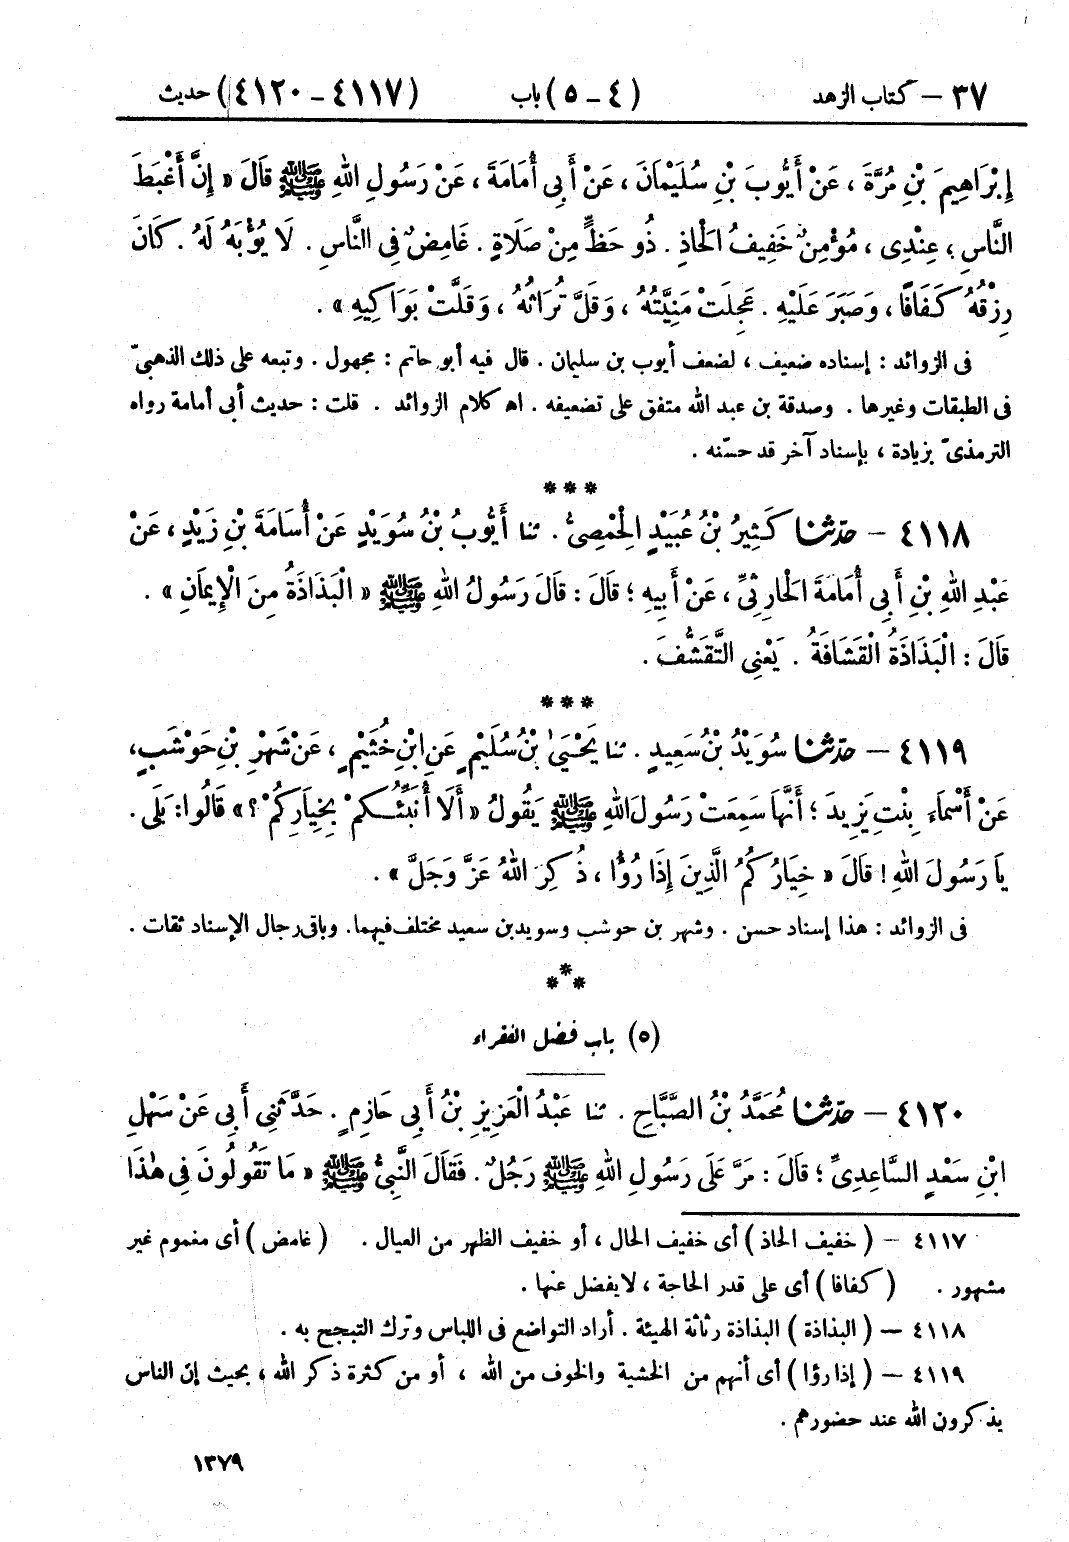 ٣٧ – كتاب الزهد (٤ – ٥) باب (٤١١٧ – ٤١٢٠) حديث
إِبْرَاهِيمَ بْنِ مُرَّةَ ، عَنْ أَيُّوبَ بْنِ سُلَيْمَانَ ، عَنْ أَبِى أُمَامَةَ ، عَنْ رَسُولِ اللهِ ﷺ قَالَ « إِنَّ أَغْبَطَ
النَّاسِ ، عِنْدِى ، مُؤْمِنٌ خَفِيفُ الْحَاذِ . ذُو حَظٍّ مِنْ صَلَاةٍ . غَامِضٌ فِى النَّاسِ . لَا يُؤْبَهُ لَهُ . كَانَ
رِزْقُهُ كَفَافًا ، وَصَبَرَ عَلَيْهِ . عَجِلَتْ مَنِيَّتُهُ ، وَقَلَّ تُرَاثُهُ ، وَقَلَّتْ بَوَاكِيهِ » .
فى الزوائد : إسناده ضعيف ، لضعف أيوب بن سليمان . قال فيه أبو حاتم : مجهول . وتبعه على ذلك الذهبىّ
فى الطبقات وغيرها . وصدقة بن عبد الله متفق على تضعيفه . اه كلام الزوائد . قلت : حديث أبى أمامة رواه
الترمذىّ بزيادة ، بإسناد آخر قد حسّنه .
***
٤١١٨ – حدّثنا كَثِيرُ بْنُ عُبَيْدٍ الْحِمْصِىُّ . ثنا أَيُّوبُ بْنُ سُوَيْدٍ عَنْ أُسَامَةَ بْنِ زَيْدٍ ، عَنْ
عَبْدِ اللهِ بْنِ أَبِى أُمَامَةَ الْحَارِثِىِّ ، عَنْ أَبِيهِ ؛ قَالَ : قَالَ رَسُولُ اللهِ ﷺ « الْبَذَاذَةُ مِنَ الْإِيمَانِ » .
قَالَ : الْبَذَاذَةُ الْقَشَافَةُ . يَعْنِى التَّقَشُّفَ .
***
٤١١٩ – حدّثنا سُوَيْدُ بْنُ سَعِيدٍ . ثنا يَحْيَىٰ بْنُ سُلَيْمٍ عَنِ ابْنِ خُثَيْمٍ ، عَنْ شَهْرِ بْنِ حَوْشَبٍ ،
عَنْ أَسْمَاءَ بِنْتِ يَزِيدَ ؛ أَنَّهَا سَمِعَتْ رَسُولَ اللهِ ﷺ يَقُولُ « أَلَا أُنَبِّئُكُمْ بِخِيَارِكُمْ ؟ » قَالُوا : بَلَى .
يَا رَسُولَ اللهِ ! قَالَ « خِيَارُكُمُ الَّذِينَ إِذَا رُؤُا ، ذُكِرَ اللهُ عَزَّ وَجَلَّ » .
فى الزوائد : هذا إسناد حسن . وشهر بن حوشب وسويد بن سعيد مختلف فيهما. وباقى رجال الإسناد ثقات .
***
(٥) باب فضل الفقراء
٤١٢٠ – حدّثنا مُحَمَّدُ بْنُ الصَّبَّاحِ . ثنا عَبْدُ الْعَزِيزِ بْنُ أَبِى حَازِمٍ . حَدَّثَنِى أَبِى عَنْ سَهْلِ
ابْنِ سَعْدٍ السَّاعِدِىِّ ؛ قَالَ : مَرَّ عَلَى رَسُولِ اللهِ ﷺ رَجُلٌ . فَقَالَ النَّبِىُّ ﷺ « مَا تَقُولُونَ فِى هٰذَا
٤١١٧ – ( خفيف الحاذ ) أى خفيف الحال ، أو خفيف الظهر من العيال . ( غامض ) أى مغموم غير
مشهور . ( كفافا ) أى على قدر الحاجة ، لا يفضل عنها .
٤١١٨ – ( البذاذة ) البذاذة رثاثة الهيئة . أراد التواضع فى اللباس وترك التبجح به .
٤١١٩ – ( إذا رؤا ) أى أنهم من الخشية والخوف من الله ، أو من كثرة ذكر الله ، بحيث إن الناس
يذكرون الله عند حضورهم .
١٣٧٩